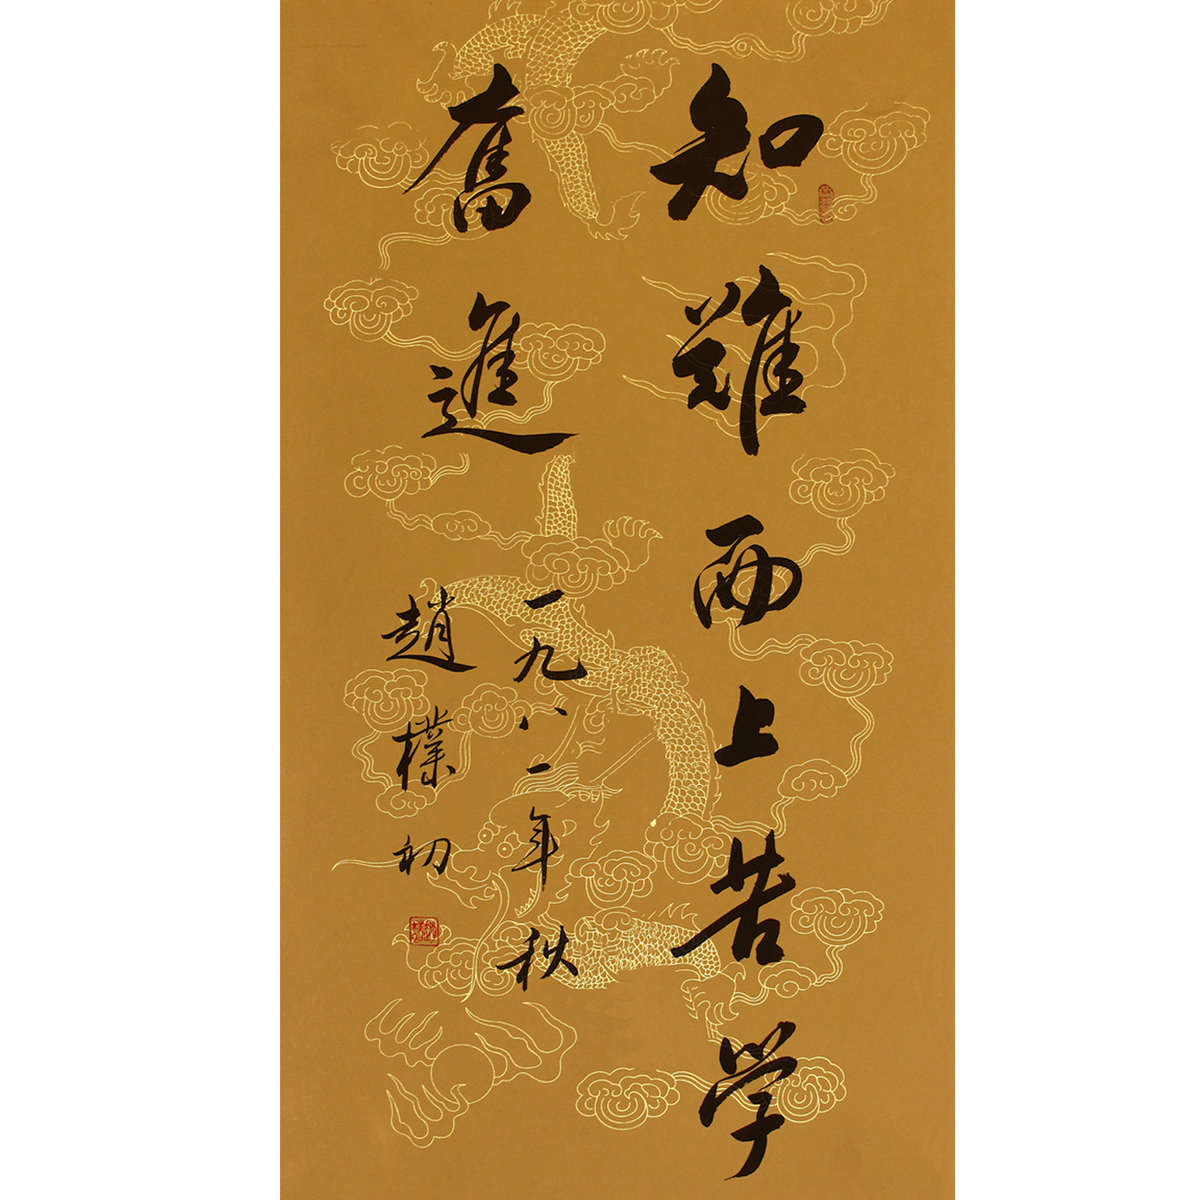 知難而上苦学
奮進
一九八一年秋
趙樸初